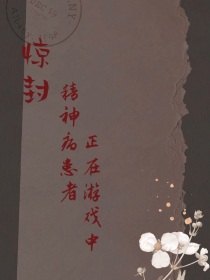 惊封
精神病患者
正在游戏中